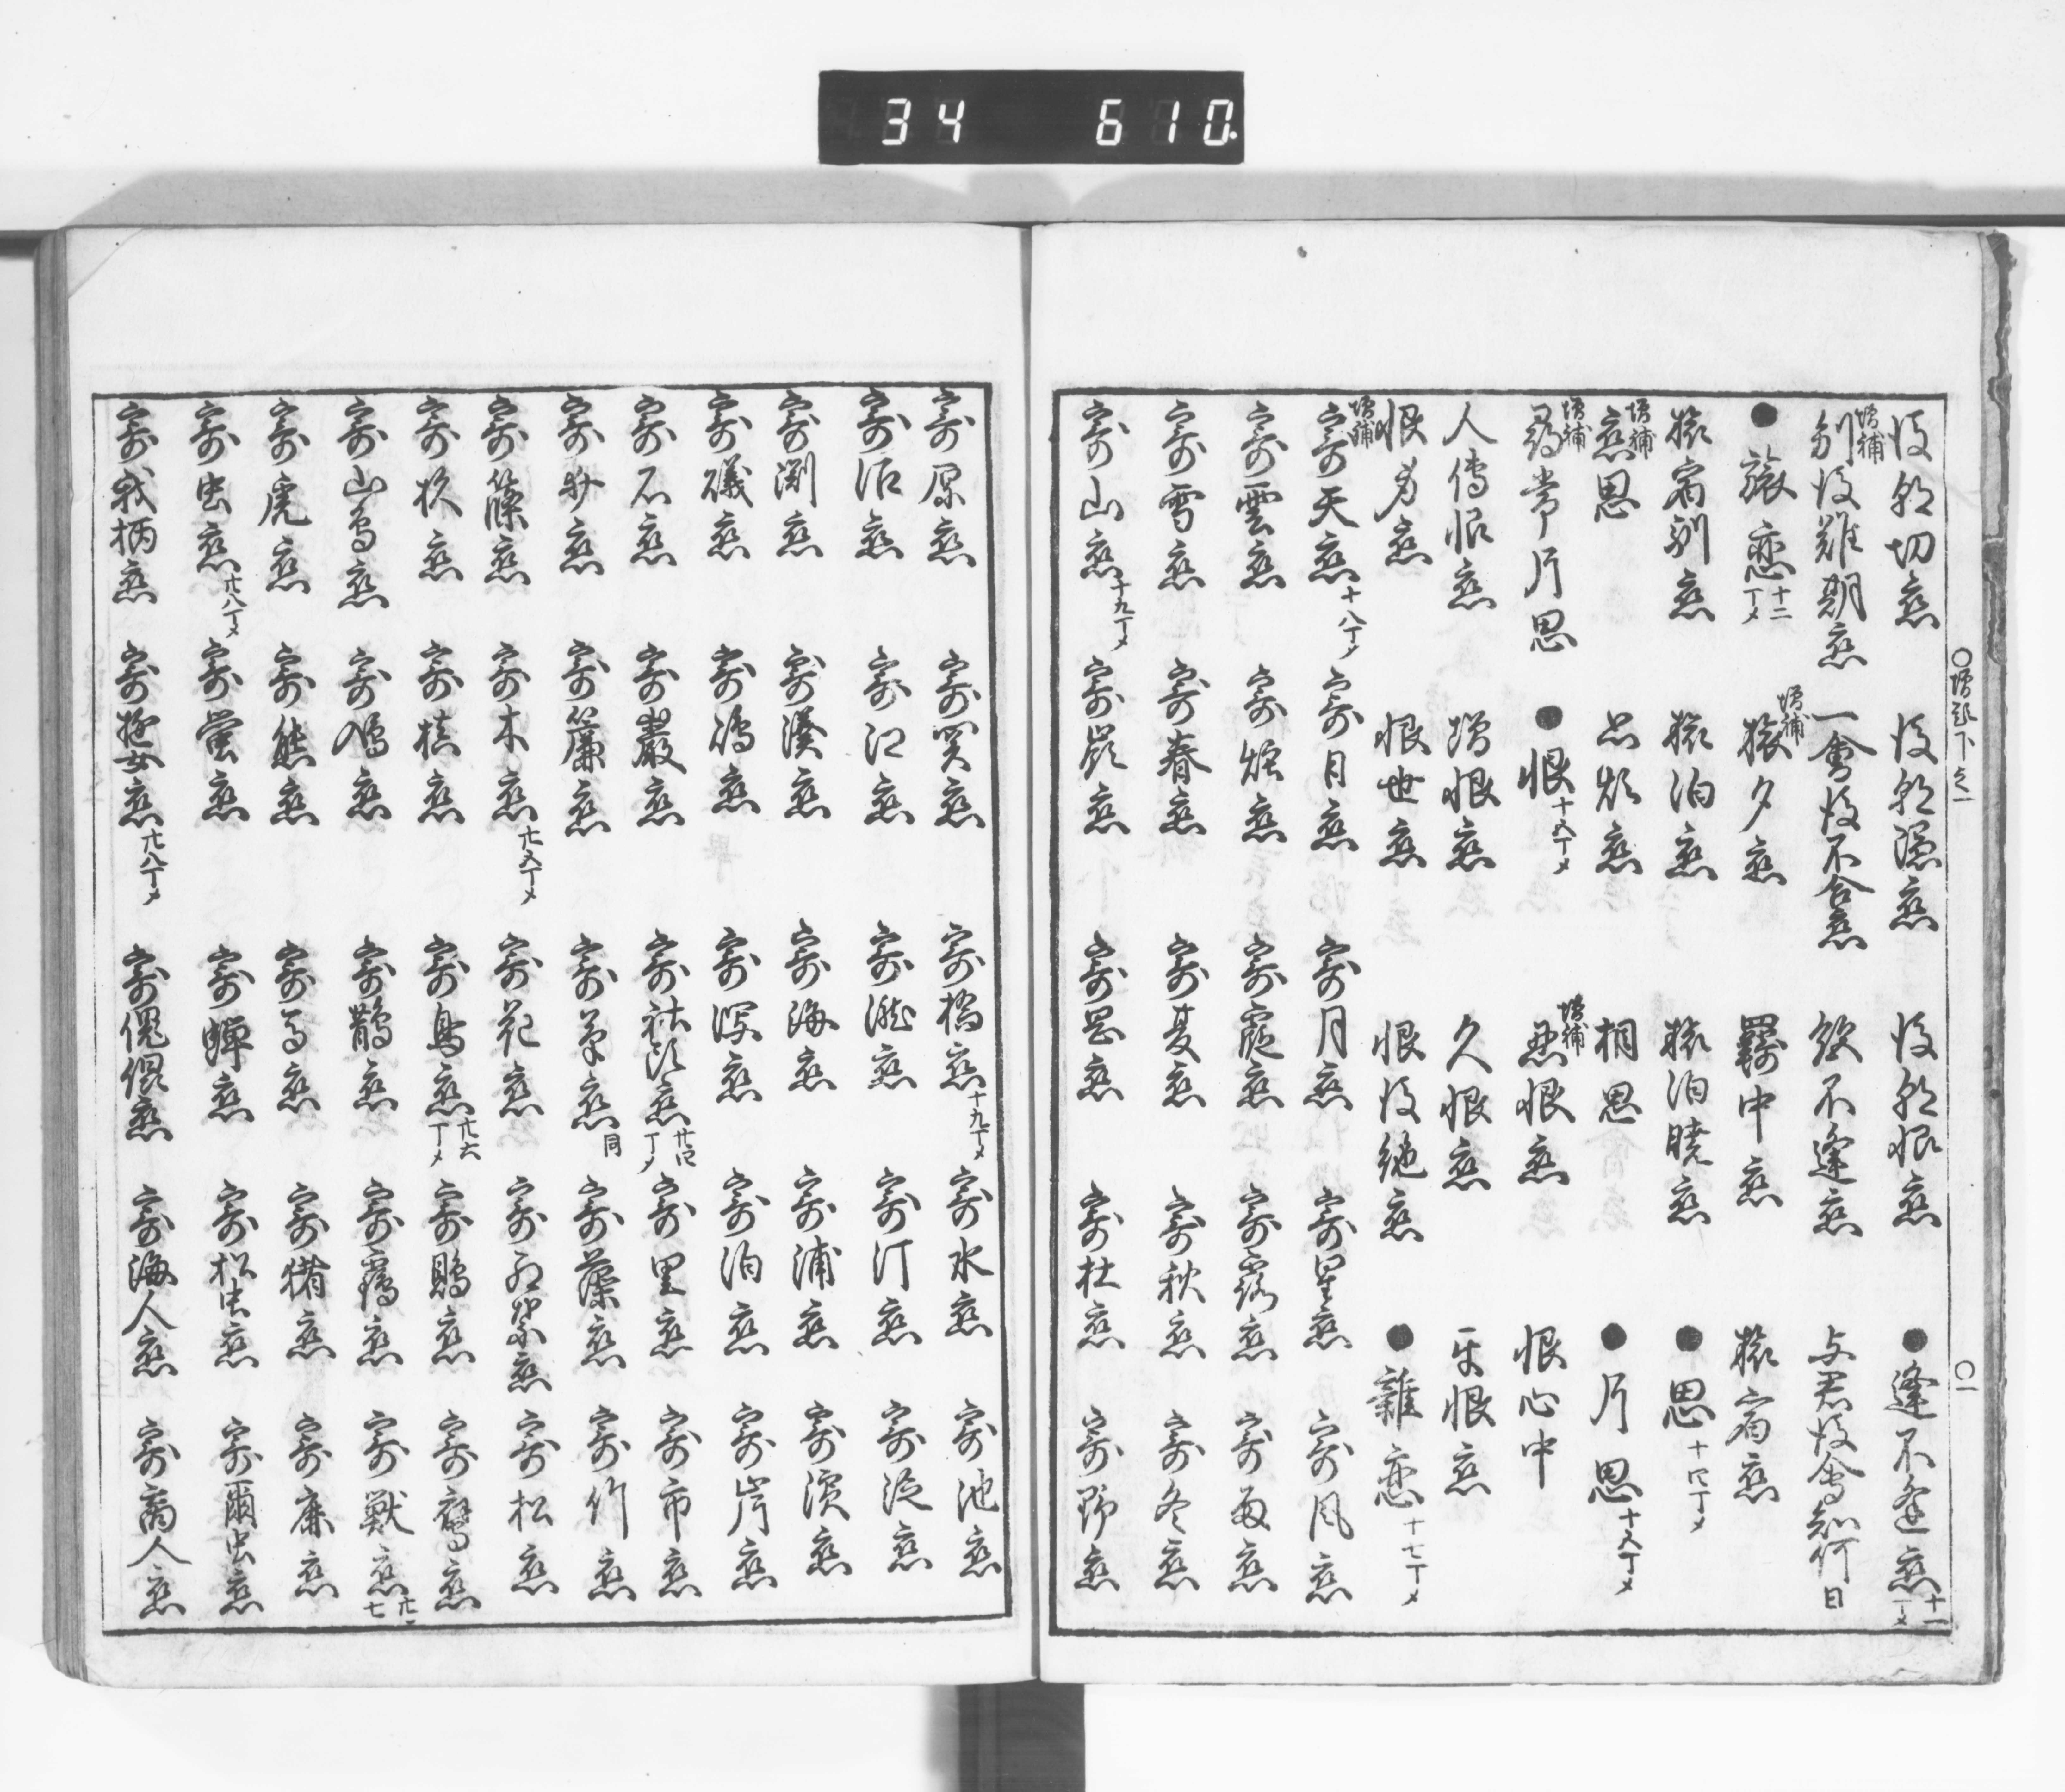 34 610.
○増題下之一
○一
後朝切恋 後朝憑恋 後朝恨恋 ●逢不逢恋十一丁メ
増補別後難期恋 一会後不合恋 欲不逢恋 与君後会知何日
●旅恋十二丁メ 増補旅夕恋 羇中恋 旅宿恋
旅宿馴恋 旅泊恋 旅泊暁恋 ●思十四丁メ
増補恋思 忍頻恋 相思 ●片思十五丁メ
増補尋常片思 ●恨十五丁メ 増補忍恨恋 恨心中
人伝恨恋 増恨恋 久恨恋 互恨恋
恨身恋 恨世恋 恨後絶恋 ●雑恋十七丁メ
増補寄天恋十八丁メ 寄日恋 寄月恋 寄星恋 寄風恋
寄雲恋 寄煙恋 寄霞恋 寄露恋 寄雨恋
寄雪恋 寄春恋 寄夏恋 寄秋恋 寄冬恋
寄山恋十九丁メ 寄嶺恋 寄岡恋 寄杜恋 寄野恋
寄原恋 寄関恋 寄橋恋十九丁メ 寄水恋 寄池恋
寄沼恋 寄江恋 寄滝恋 寄汀恋 寄淀恋
寄淵恋 寄湊恋 寄海恋 寄浦恋 寄浜恋
寄磯恋 寄嶋恋 寄潟恋 寄泊恋 寄岸恋
寄石恋 寄巌恋 寄社頭恋廿四丁メ 寄里恋 寄市恋
寄砂恋 寄簾恋 寄草恋同 寄藻恋 寄竹恋
寄篠恋 寄木恋廿五丁メ 寄花恋 寄紅葉恋 寄松恋
寄杉恋 寄槙恋 寄鳥恋廿六丁メ 寄鶏恋 寄鷹恋
寄山鳥恋 寄鴫恋 寄鵲恋 寄鶴恋 寄獣恋廿七
寄虎恋 寄熊恋 寄馬恋 寄猪恋 寄鹿恋
寄虫恋廿八丁メ 寄蛍恋 寄蝉恋 寄松虫恋 寄爾虫恋
寄我柄恋 寄遊女恋廿八丁メ 寄傀儡恋 寄海人恋 寄商人恋